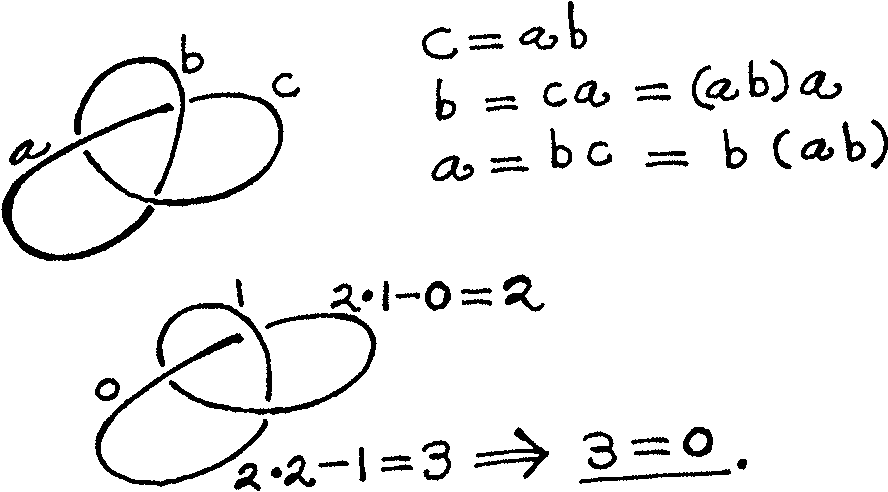 b
c
a
c = ab
b = ca = (ab)a
a = bc = b(ab)
1
2·1-0=2
0
2·2-1=3 ⇒ 3=0.